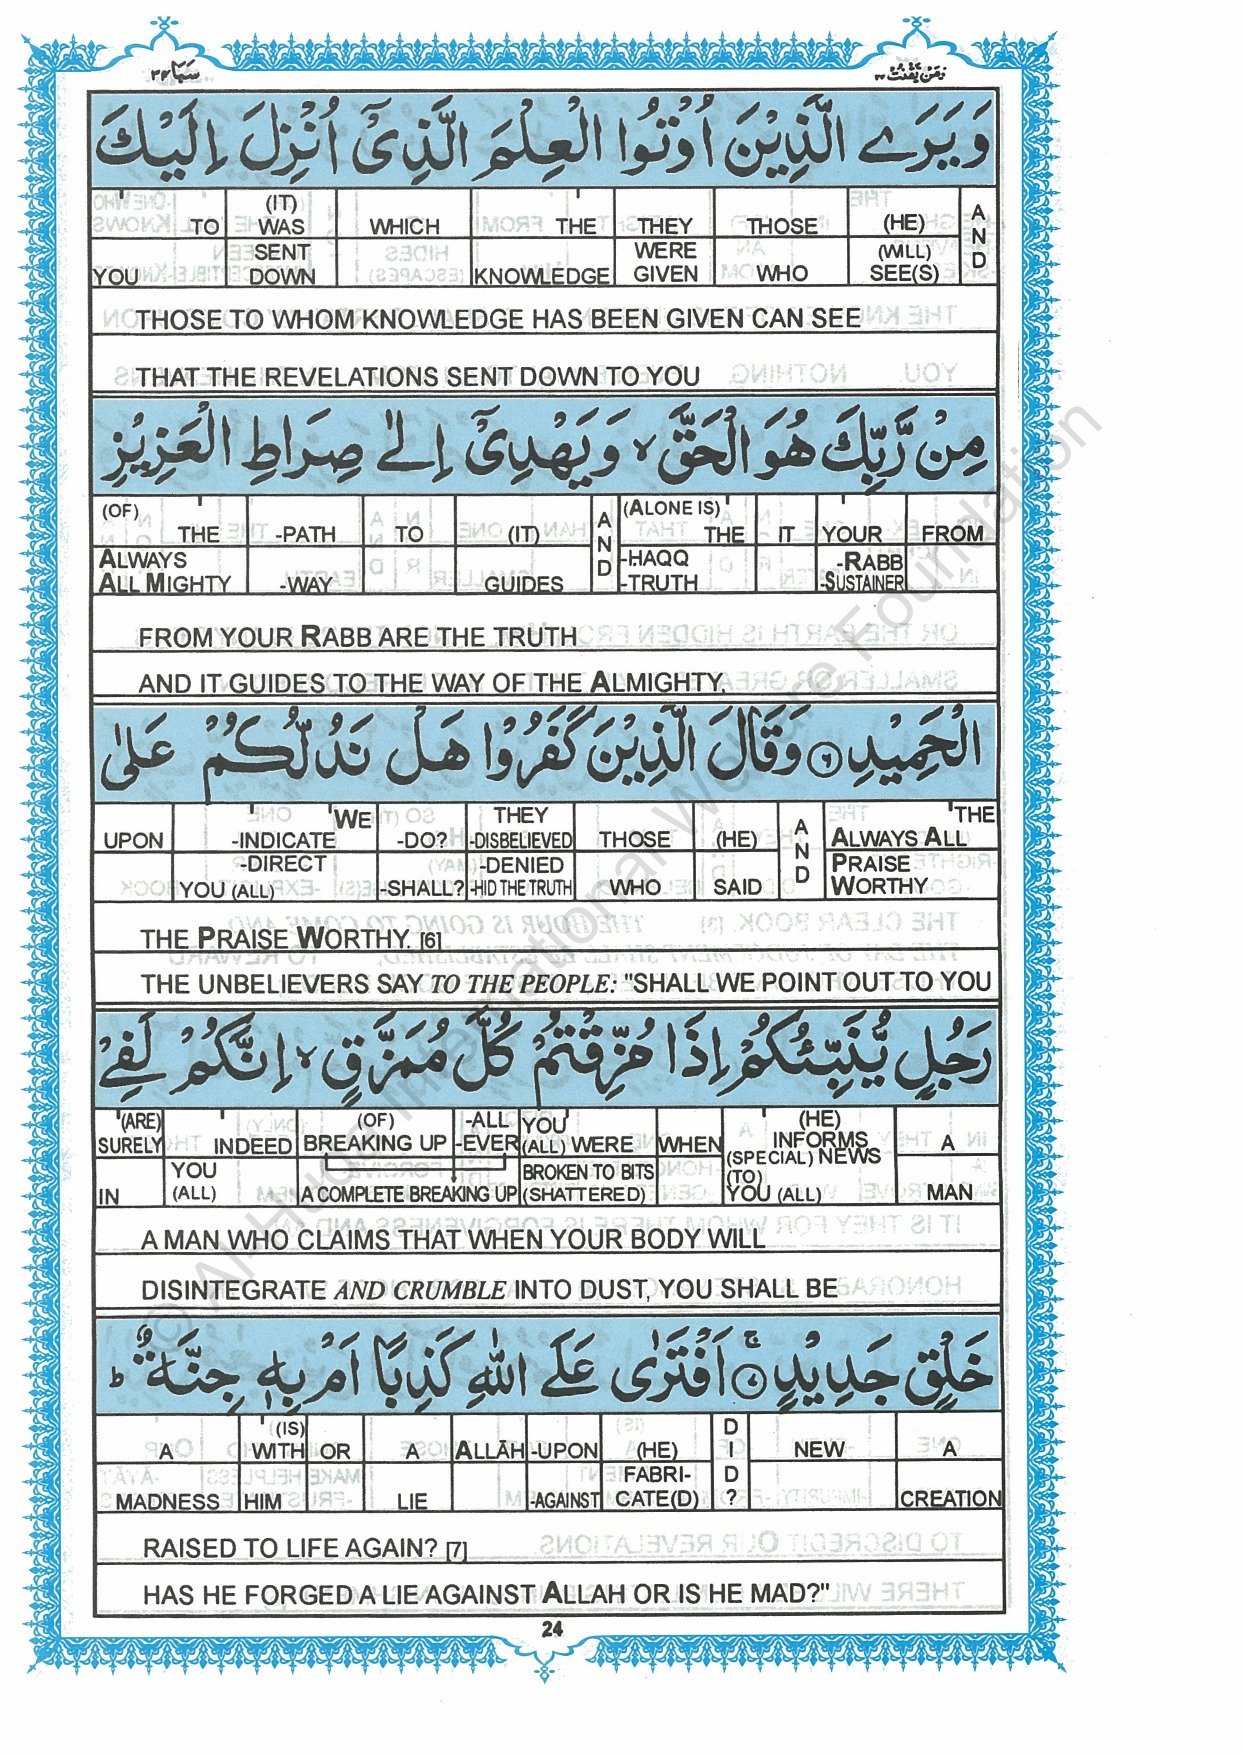 سَبَا ٣٤
وَمَنْ يَّقْنُتْ ٢٢
وَ يَرَے الَّذِيْنَ اُوْتُوا الْعِلْمَ الَّذِىْٓ اُنْزِلَ اِلَيْكَ
TO (IT) WAS WHICH THE THEY THOSE (HE) AND
YOU SENT DOWN KNOWLEDGE WERE GIVEN WHO (WILL) SEE(S)
THOSE TO WHOM KNOWLEDGE HAS BEEN GIVEN CAN SEE
THAT THE REVELATIONS SENT DOWN TO YOU
مِنْ رَّبِّكَ هُوَ الْحَقَّ ۙ وَ يَهْدِىْٓ اِلٰى صِرَاطِ الْعَزِيْزِ
(OF) THE -PATH TO (IT) AND (ALONE IS) THE IT YOUR FROM
ALWAYS ALL MIGHTY -WAY GUIDES -HAQQ -TRUTH -RABB -SUSTAINER
FROM YOUR RABB ARE THE TRUTH
AND IT GUIDES TO THE WAY OF THE ALMIGHTY,
الْحَمِيْدِ ۝٦ وَقَالَ الَّذِيْنَ كَفَرُوْا هَلْ نَدُلُّكُمْ عَلٰى
UPON -INDICATE WE -DO? THEY -DISBELIEVED THOSE (HE) AND THE ALWAYS ALL
-DIRECT YOU (ALL) -SHALL? -DENIED -HID THE TRUTH WHO SAID PRAISE WORTHY
THE PRAISE WORTHY. [6]
THE UNBELIEVERS SAY TO THE PEOPLE: "SHALL WE POINT OUT TO YOU
رَجُلٍ يُّنَبِّئُكُمْ اِذَا مُزِّقْتُمْ كُلَّ مُمَزَّقٍ ۙ اِنَّكُمْ لَفِىْ
(ARE) SURELY INDEED (OF) BREAKING UP -ALL -EVER YOU (ALL) WERE WHEN (HE) INFORMS (SPECIAL) NEWS A
IN YOU (ALL) A COMPLETE BREAKING UP BROKEN TO BITS (SHATTERED) (TO) YOU (ALL) MAN
A MAN WHO CLAIMS THAT WHEN YOUR BODY WILL
DISINTEGRATE AND CRUMBLE INTO DUST, YOU SHALL BE
خَلْقٍ جَدِيْدٍ ۝٧ۚ اَفْتَرٰى عَلَى اللّٰهِ كَذِبًا اَمْ بِهٖ جِنَّةٌ ؕ
A (IS) WITH OR A ALLĀH -UPON (HE) DID? NEW A
MADNESS HIM LIE -AGAINST FABRI-CATE(D) CREATION
RAISED TO LIFE AGAIN? [7]
HAS HE FORGED A LIE AGAINST ALLAH OR IS HE MAD?"
24
© Al-Huda International Welfare Foundation